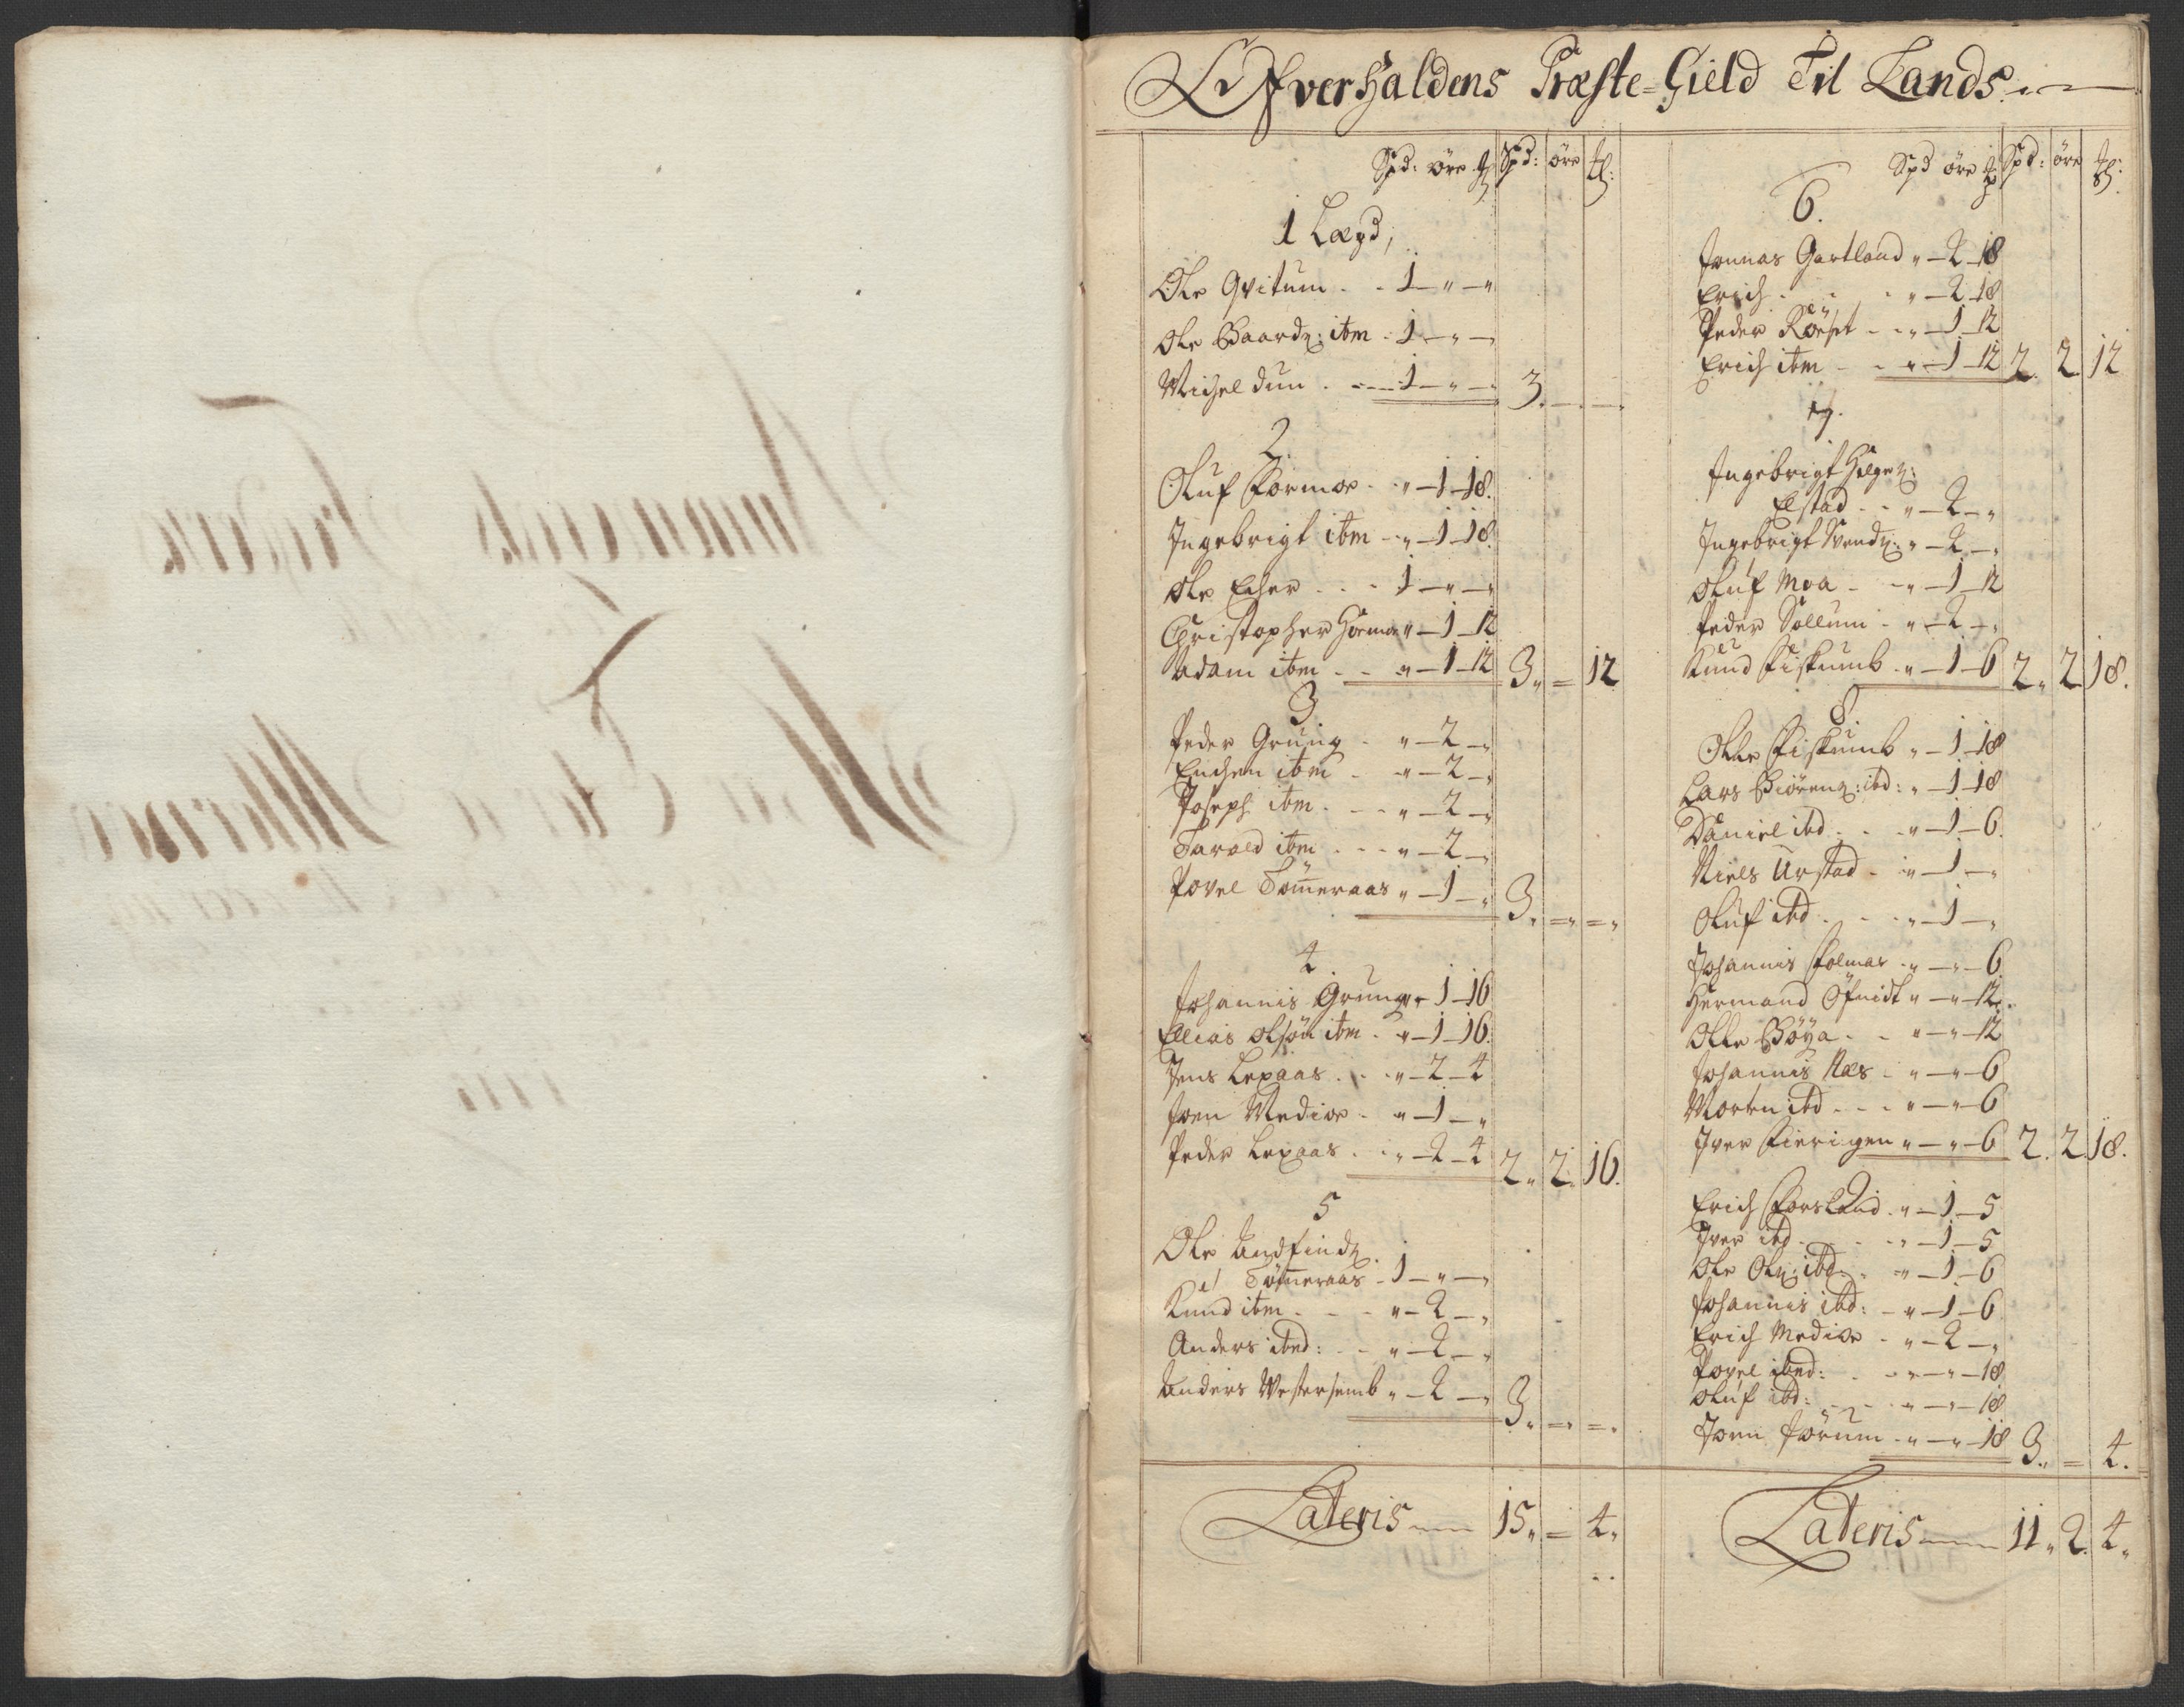 Ofverhaldens Præste-Gield Til Lands
Spd: öre Spd: öre
1 Lægd;
Ole Qvitum 1 " "
Ole Baardz: itm 1 " "
Michel dun 1 " " 3
2.
Oluf Formoe " 1 18.
Ingebrigt itm " 1 18.
Ole Echer 1 " "
Christopher Homoe " 1 12
Adam itm " 1 12 3 " = 12
3
Peder Grung " 2 "
Enchen itm " 2 "
Joseph itm " 2 "
Tarald itm " 2 "
Povel Tömeraas " 1 " 3 " = " = "
4.
Johannis Grung " 1 16
Ellias olsön itm " 1 16.
Jens Lexaas " 2 4
Joen Medioe " 1 "
Peder Lexaas " 2 4 2 " 2 " 16.
5
Ole Andfindz
Tömeraas 1 " "
Knud itm " 2 "
Anders ibed: " 2 "
Anders Westersemb " 2 " 3 " = " = "
Lateris 15 " = 4 "
Spd öre Spd: öre
6.
Jonnas Gartland " 2 18
Erich " 2 18
Peder Röeset " 1 12
Erich itm " 1 12 2. 2 12
7.
Ingebrigt Helgez:
Elstad " 2 "
Ingebrigt Svendz: " 2 "
Oluf Moa " 1 12
Peder Sollum " 2 "
Knud Fiskumb " 1 6 2 " 2 18.
8
Olle Fiskumb " 1 18
Lars Biörenz: ibd: " 1 18
Daniel ibd " 1 6.
Niels Urstad " 1 "
Oluf ibd " 1 "
Johannis Folmar " " 6
Hermand Öfnidt " " 12.
Olle Böya " " 12
Johannis Næs " " 6
Morten ibd " " 6
Iver Fieringen " " 6 2. 2. 18.
Erich Forsland " 1 5
Iver ibd " 1 5
Ole Olz: ibd " 1 6
Johannis ibd: " 1 6
Erich Medioe " 2 "
Povel ibed: " " 18
Oluf ibd: " " 18
Joen Jörum " " 18 3 " = 4.
Lateris 11 " 2. 4 "